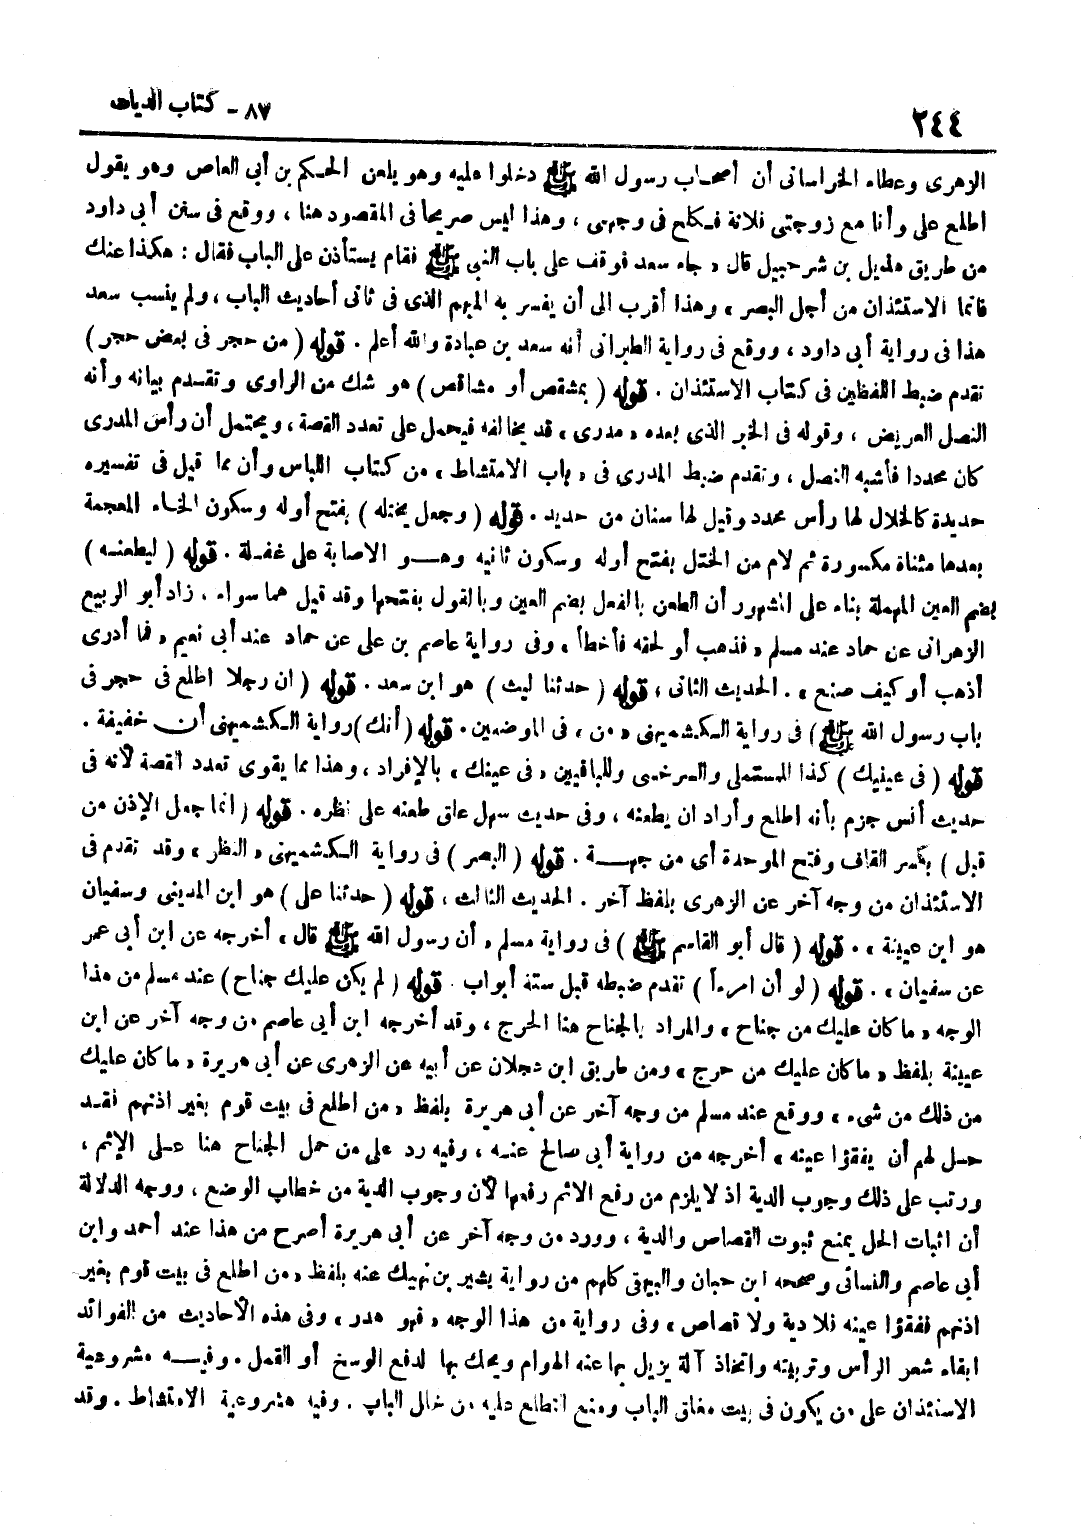 ٢٤٤
٨٧ - كتاب الديات
الزهرى وعطاء الخراسانى أن أصحاب رسول الله ﷺ دخلوا عليه وهو يلعن الحكم بن أبى العاص وهو يقول
اطلع على وأنا مع زوجتى فلانة فكلح فى وجهى ، وهذا ليس صريحا فى المقصود هنا ، ووقع فى سنن أبى داود
من طريق هذيل بن شرحبيل قال « جاء سعد فوقف على باب النبى ﷺ فقام يستأذن على الباب فقال : هكذا عنك
فانما الاستئذان من أجل البصر ، وهذا أقرب الى أن يفسر به المبهم الذى فى ثانى أحاديث الباب ، ولم ينسب سعد
هذا فى رواية أبى داود ، ووقع فى رواية الطبرانى أنه سعد بن عبادة والله أعلم . قوله ( من حجر فى بعض حجر )
تقدم ضبط اللفظين فى كتاب الاستئذان . قوله ( بمشقص أو مشاقص ) هو شك من الراوى وتقدم بيانه وأنه
النصل العريض ، وقوله فى الخبر الذى بعده « مدرى ، قد يخالفه فيحمل على تعدد القصة ، ويحتمل أن رأس المدرى
كان محددا فأشبه النصل ، وتقدم ضبط المدرى فى « باب الامتشاط ، من كتاب اللباس وأن مما قيل فى تفسيره
حديدة كالخلال لها رأس محدد وقيل لها سنان من حديد . قوله ( وجعل يختله ) بفتح أوله وسكون الخاء المعجمة
بعدها مثناة مكسورة ثم لام من الختل بفتح أوله وسكون ثانيه وهو الاصابة على غفلة . قوله ( ليطعنه )
بضم العين المهملة بناء على المشهور أن الطعن بالفعل بضم العين وبالقول بفتحها وقد قيل هما سواء . زاد أبو الربيع
الزهرانى عن حماد عند مسلم « فذهب أو لحقه فأخطأ ، وفى رواية عاصم بن على عن حماد عند أبى نعيم « فما أدرى
أذهب أو كيف صنع » . الحديث الثانى ، قوله ( حدثنا ليث ) هو ابن سعد . قوله ( ان رجلا اطلع فى حجر فى
باب رسول الله ﷺ ) فى رواية الكشميهنى « من ، فى الموضعين . قوله ( أنك ) رواية الكشميهنى أن خفيفة .
قوله ( فى عينيك ) كذا للمستملى والسرخسى وللباقيين « فى عينك ، بالإفراد ، وهذا مما يقوى تعدد القصة لأنه فى
حديث أنس جزم بأنه اطلع وأراد ان يطعنه ، وفى حديث سهل علق طعنه على نظره . قوله ( انما جعل الإذن من
قبل ) بكسر القاف وفتح الموحدة أى من جهة . قوله ( البصر ) فى رواية الكشميهنى « النظر ، وقد تقدم فى
الاستئذان من وجه آخر عن الزهرى بلفظ آخر . الحديث الثالث ، قوله ( حدثنا على ) هو ابن المدينى وسفيان
هو ابن عيينة » . قوله ( قال أبو القاسم ﷺ ) فى رواية مسلم « أن رسول الله ﷺ قال ، أخرجه عن ابن أبى عمر
عن سفيان » . قوله ( لو أن امرءاً ) تقدم ضبطه قبل ستة أبواب . قوله ( لم يكن عليك جناح ) عند مسلم من هذا
الوجه « ما كان عليك من جناح ، والمراد بالجناح هنا الحرج ، وقد أخرجه ابن أبى عاصم من وجه آخر عن ابن
عيينة بلفظ « ما كان عليك من حرج ، ومن طريق ابن عجلان عن أبيه عن الزهرى عن أبى هريرة « ما كان عليك
من ذلك من شىء ، ووقع عند مسلم من وجه آخر عن أبى هريرة بلفظ « من اطلع فى بيت قوم بغير اذنهم فقد
حل لهم أن يفقؤا عينه ، أخرجه من رواية أبى صالح عنه ، وفيه رد على من حمل الجناح هنا على الإثم ،
ورتب على ذلك وجوب الدية اذ لا يلزم من رفع الاثم رفعها لأن وجوب الدية من خطاب الوضع ، ووجه الدلالة
أن اثبات الحل يمنع ثبوت القصاص والدية ، وورد من وجه آخر عن أبى هريرة أصرح من هذا عند أحمد وابن
أبى عاصم والنسائى وصححه ابن حبان والبيهقى كلهم من رواية بشير بن نهيك عنه بلفظ « من اطلع فى بيت قوم بغير
اذنهم ففقؤا عينه فلا دية ولا قصاص ، وفى رواية من هذا الوجه « فهو هدر ، وفى هذه الأحاديث من الفوائد
ابقاء شعر الرأس وتربيته واتخاذ آلة يزيل بها عنه الهوام ويحك بها لدفع الوسخ أو القمل . وفيه مشروعية
الاستئذان على من يكون فى بيت مغلق الباب ومنع التطلع عليه من خلل الباب . وفيه مشروعية الامتشاط . وقد